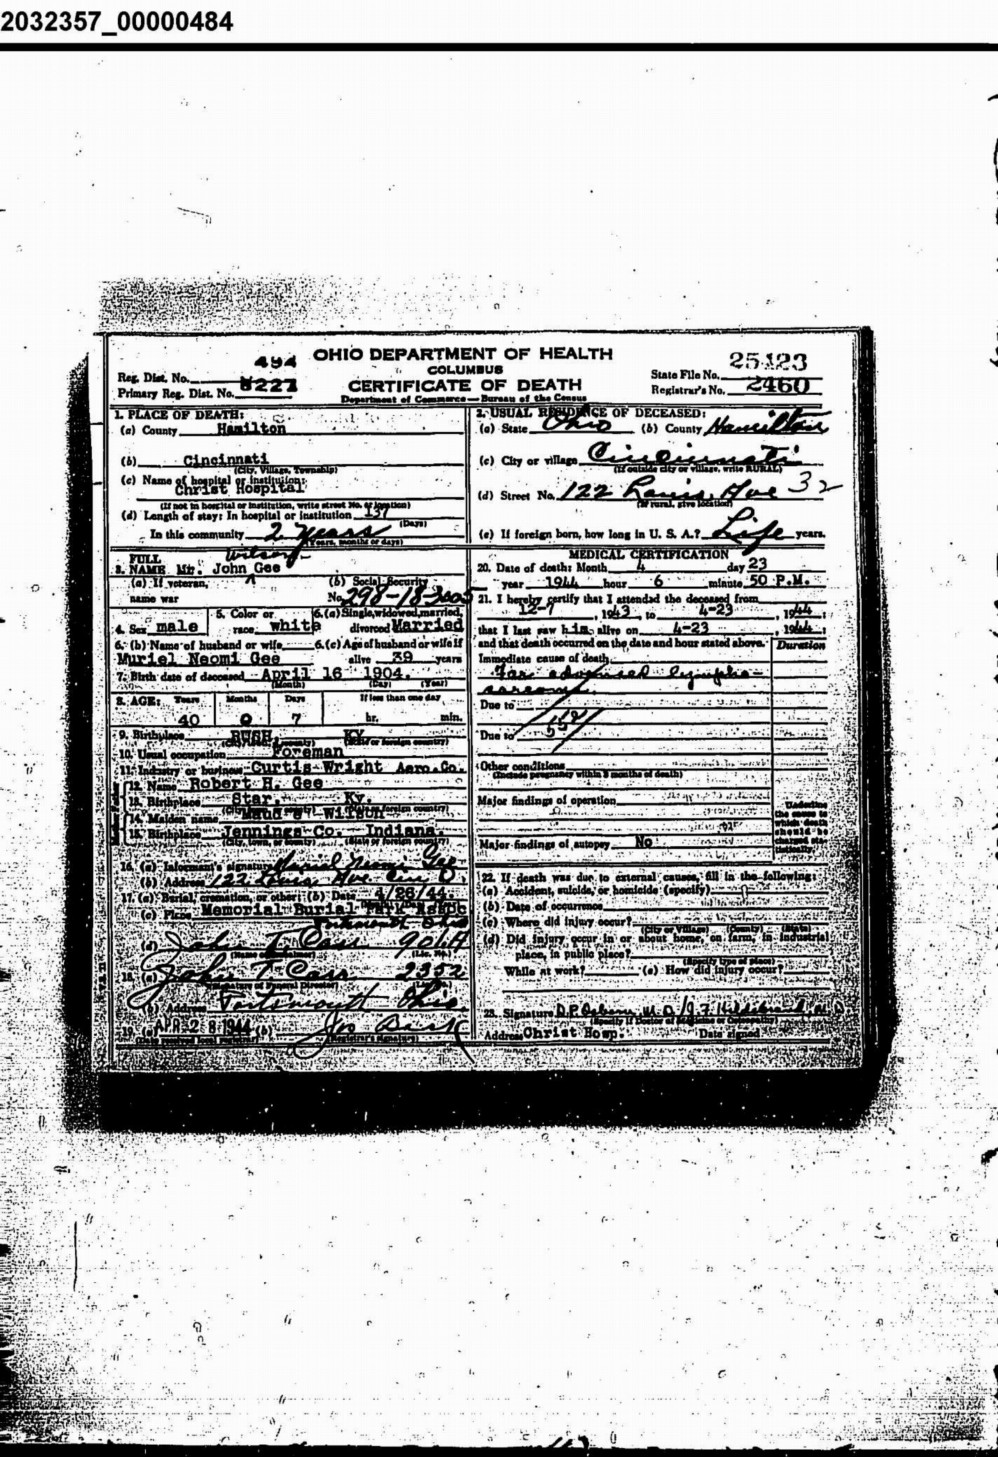 2032357_00000484
OHIO DEPARTMENT OF HEALTH
COLUMBUS
CERTIFICATE OF DEATH
Department of Commerce — Bureau of the Census
Reg. Dist. No. 494
Primary Reg. Dist. No. 8227
State File No. 25423
Registrar's No. 2460
1. PLACE OF DEATH:
(a) County Hamilton
(b) Cincinnati
(City, Village, Township)
(c) Name of hospital or institution:
Christ Hospital
(If not in hospital or institution, write street No. or location)
(d) Length of stay: In hospital or institution 137
(Days)
In this community 2 years
(Years, months or days)
2. USUAL RESIDENCE OF DECEASED:
(a) State Ohio (b) County Hamilton
(c) City or village Cincinnati
(If outside city or village, write RURAL)
(d) Street No. 122 Louis Ave 32
(If rural, give location)
(e) If foreign born, how long in U. S. A.? Life years.
3. FULL NAME Mr. John Wilson Gee
(a) If veteran, name war
(b) Social Security No. 298-18-3005
4. Sex male
5. Color or race white
6. (a) Single, widowed, married, divorced Married
6. (b) Name of husband or wife Muriel Neomi Gee
6. (c) Age of husband or wife if alive 39 years
7. Birth date of deceased April 16 1904
(Month) (Day) (Year)
8. AGE: Years Months Days If less than one day
40 0 7 hr. min.
9. Birthplace RUSH, KY
10. Usual occupation Foreman
11. Industry or business Curtis-Wright Aero. Co.
12. Name Robert H. Gee
13. Birthplace Star, Ky.
14. Maiden name Maud S Wilson
15. Birthplace Jennings Co. Indiana.
(City, town, or county) (State or foreign country)
16. (a) Informant's signature Gee
(b) Address 122 Louis Ave Cin O.
17. (a) Burial, cremation, or other: (b) Date 4/26/44
(c) Place Memorial Burial Park
Portsmouth Ohio
(d) John T. Cass 906A
(Lic. No.)
18. (a) John T. Cass 2352
(Signature of Funeral Director)
(b) Address Portsmouth Ohio
19. (a) APR 28 1944 (b)
(Date received local registrar) (Registrar's signature)
MEDICAL CERTIFICATION
20. Date of death: Month 4 day 23
year 1944 hour 6 minute 50 P.M.
21. I hereby certify that I attended the deceased from
12-7, 1943, to 4-23, 1944;
that I last saw him alive on 4-23, 1944;
and that death occurred on the date and hour stated above.
Duration
Immediate cause of death
Far advanced lympho-
sarcoma
Due to
Due to
Other conditions
(Include pregnancy within 3 months of death)
Major findings of operation
Major findings of autopsy No
Underline the cause to which death should be charged statistically
22. If death was due to external causes, fill in the following:
(a) Accident, suicide, or homicide (specify)
(b) Date of occurrence
(c) Where did injury occur?
(City or Village) (County) (State)
(d) Did injury occur in or about home, on farm, in industrial
place, in public place?
(Specify type of place)
While at work? (e) How did injury occur?
23. Signature D.P. Osborn M.D.
(Specify if Doctor of Medicine or Osteopathy)
Address Christ Hosp. Date signed